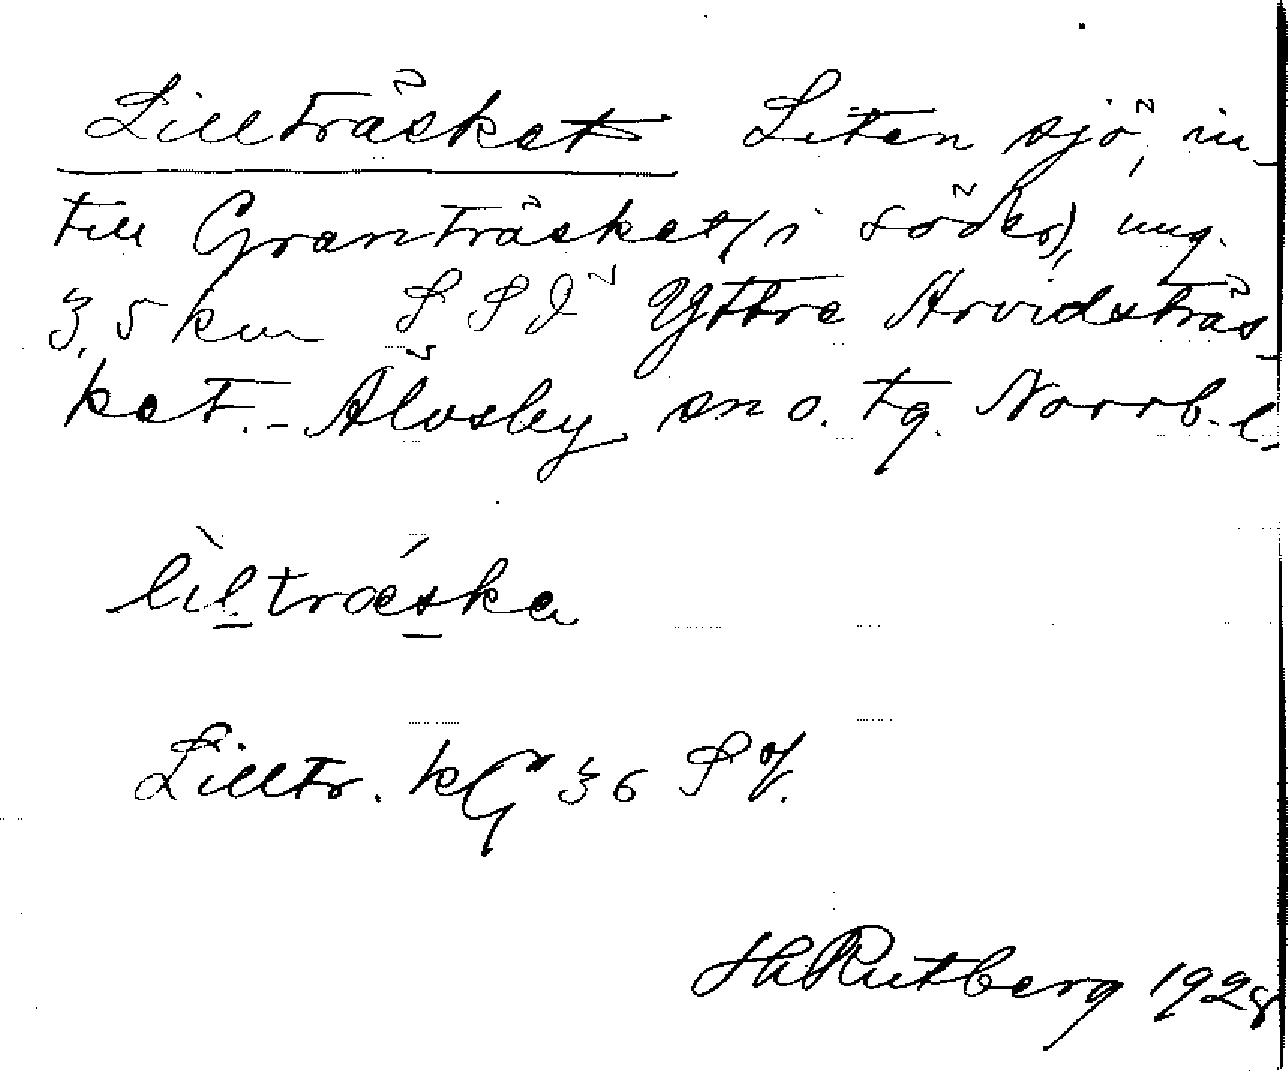 Lillträsket Liten sjö, in-
till Granträsket (i söder), ung.
3,5 km SSÖ Yttre Arvidsträs-
ket. - Älvsby sn o. tg. Norrb. l.
lìltrǽska
Lilltr. kG 36 SV.
H Rutberg 1928